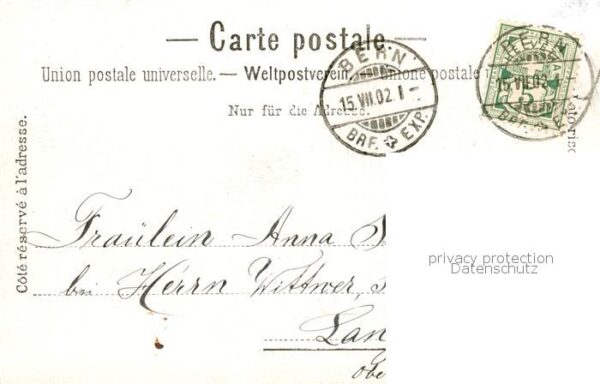 — Carte postale. —
Union postale universelle. — Weltpostverein. — Unione postale
Nur für die Adresse.
BERN
15.VII.02.I–
BRF. EXP.
BERN
15.VII.02.
5
Côté réservé à l'adresse.
privacy protection
Datenschutz
Fräulein Anna
bei Herrn Wittwer,
Lan
obe